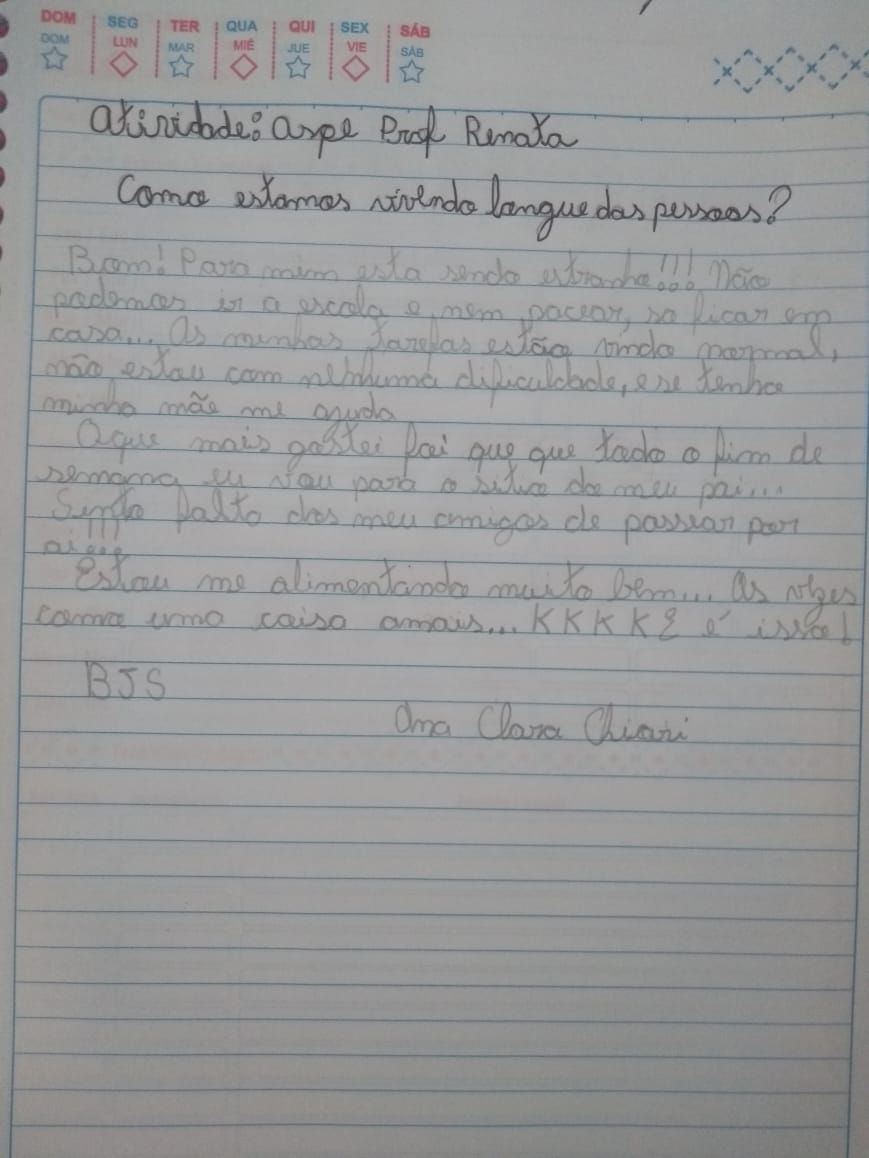 DOM SEG TER QUA QUI SEX SÁB
DOM LUN MAR MIÉ JUE VIE SÁB
Atividade: Arpe Prof Renata
Como estamos vivendo langue das pessoas?
Bom! Para mim esta sendo estranho!!! Não
podemos ir a escola e nem pacear, so ficar em
casa... As minhas tarefas estão vindo normal,
não estou com nenhuma dificuldade, e se tenho
minha mãe me ajuda
Oque mais gostei foi que que todo o fim de
semana eu vou para o sitio do meu pai...
Sinto falto dos meu amigos de passear por
ai!!!
Estou me alimentando muito bem... As vezes
como uma coisa amais... KKKK e é isso!
BJS
Ana Clara Chiari